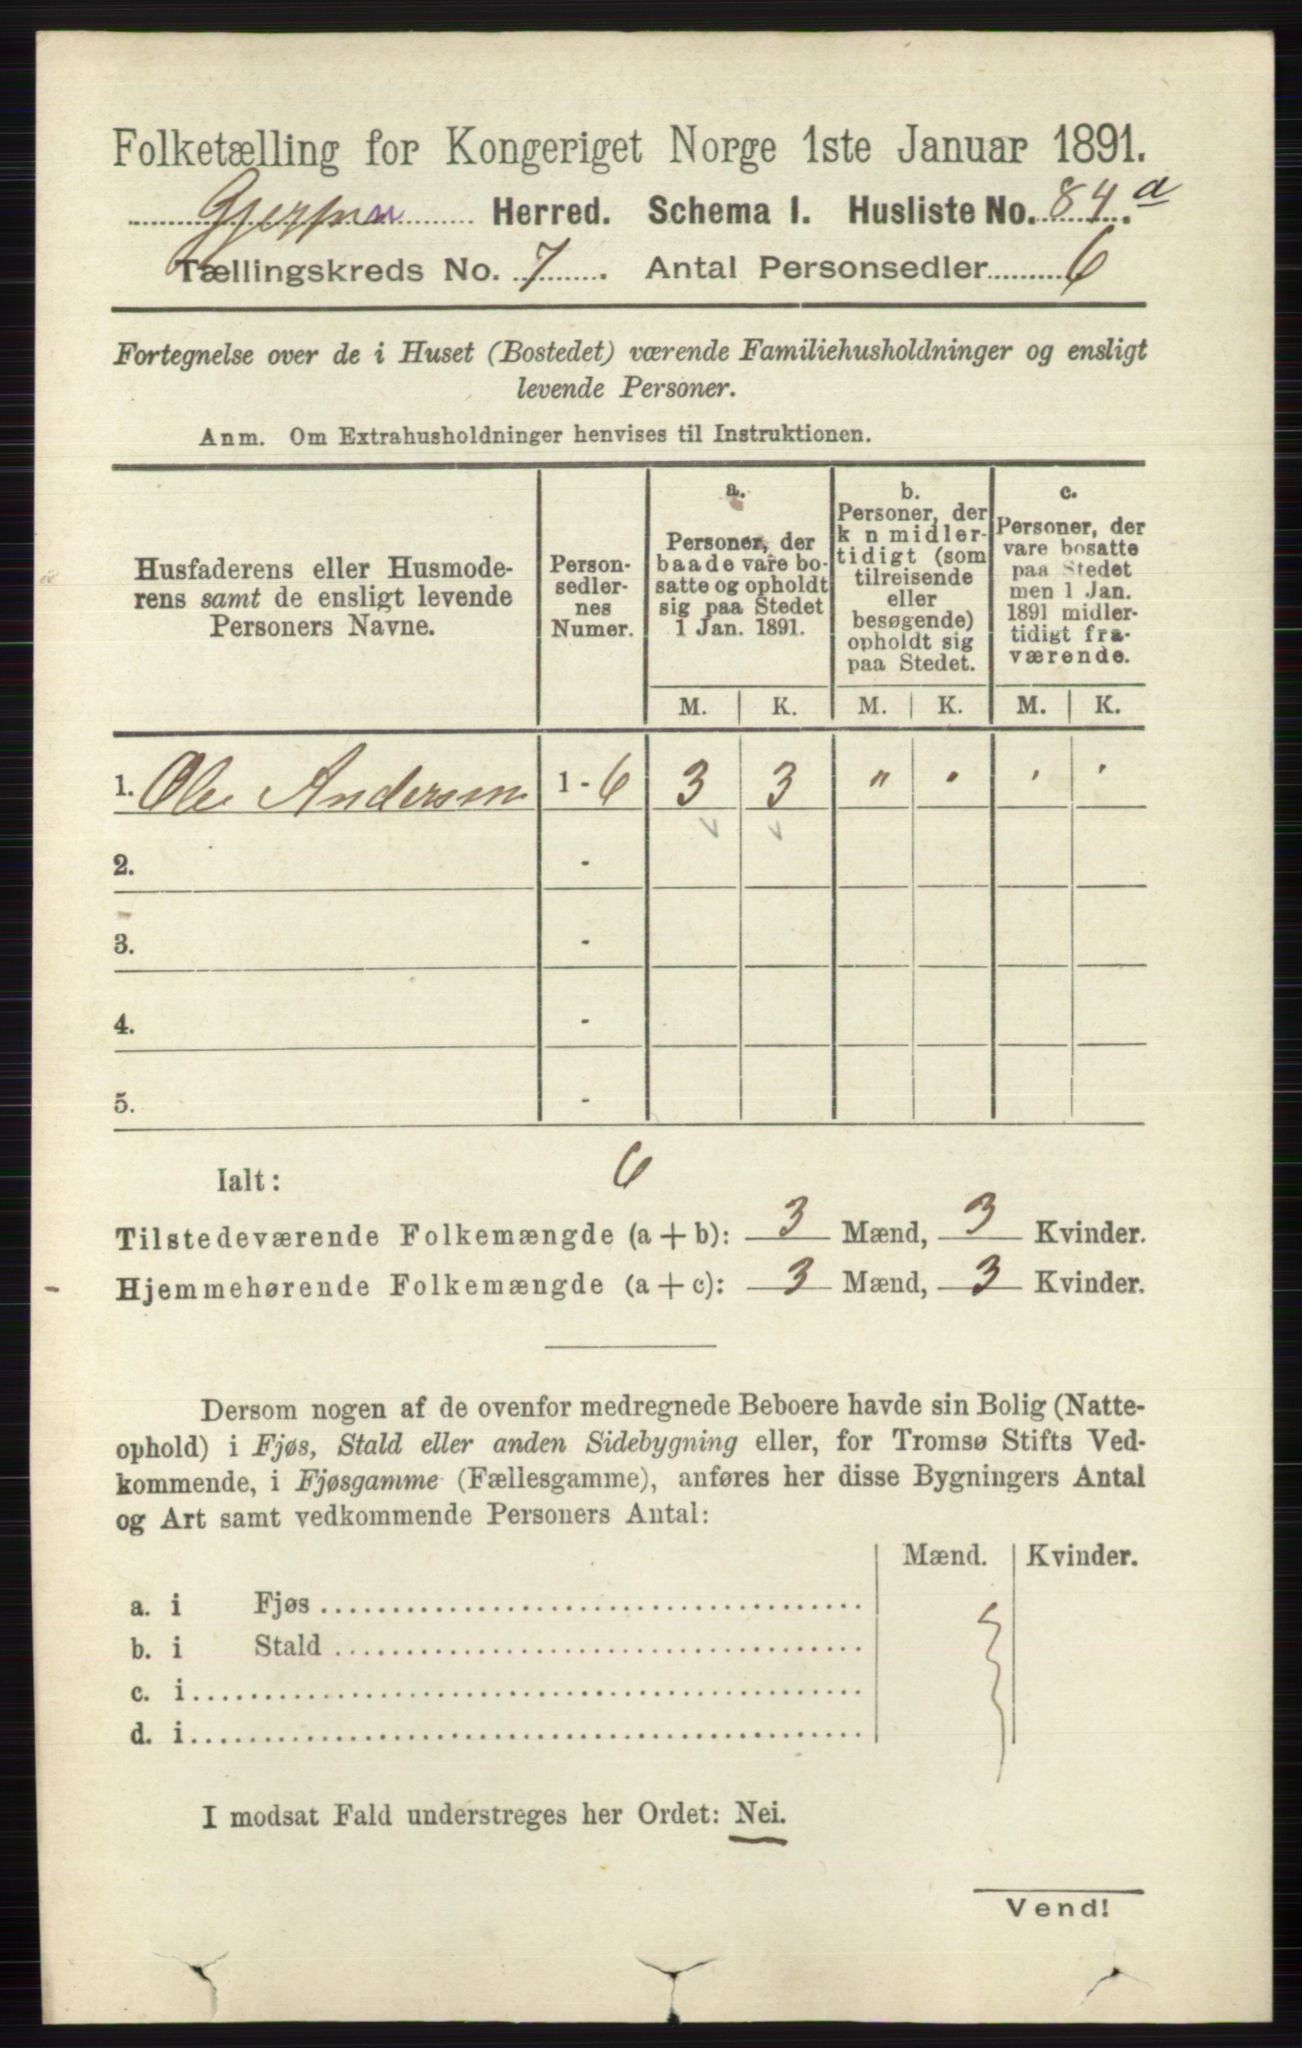 Folketælling for Kongeriget Norge 1ste Januar 1891.
Gjerpen Herred. Schema I. Husliste No. 84.a
Tællingskreds No. 7. Antal Personsedler 6
Fortegnelse over de i Huset (Bostedet) værende Familiehusholdninger og ensligt
levende Personer.
Anm. Om Extrahusholdninger henvises til Instruktionen.
Husfaderens eller Husmode-
rens samt de ensligt levende
Personers Navne.
Person-
sedler-
nes
Numer.
a.
Personer, der
baade vare bo-
satte og opholdt
sig paa Stedet
1 Jan. 1891.
b.
Personer, der
k n midler-
tidigt (som
tilreisende
eller
besøgende)
opholdt sig
paa Stedet.
c.
Personer, der
vare bosatte
paa Stedet
men 1 Jan.
1891 midler-
tidigt fra-
værende.
M. K. M. K. M. K.
1. Ole Andersen 1 - 6 3 3 " · · ·
2. -
3. -
4. -
5. -
Ialt: 6
Tilstedeværende Folkemængde (a + b): 3 Mænd, 3 Kvinder.
Hjemmehørende Folkemængde (a + c): 3 Mænd, 3 Kvinder.
Dersom nogen af de ovenfor medregnede Beboere havde sin Bolig (Natte-
ophold) i Fjøs, Stald eller anden Sidebygning eller, for Tromsø Stifts Ved-
kommende, i Fjøsgamme (Fællesgamme), anføres her disse Bygningers Antal
og Art samt vedkommende Personers Antal:
Mænd. Kvinder.
a. i Fjøs
b. i Stald
c. i
d. i
I modsat Fald understreges her Ordet: Nei.
Vend!